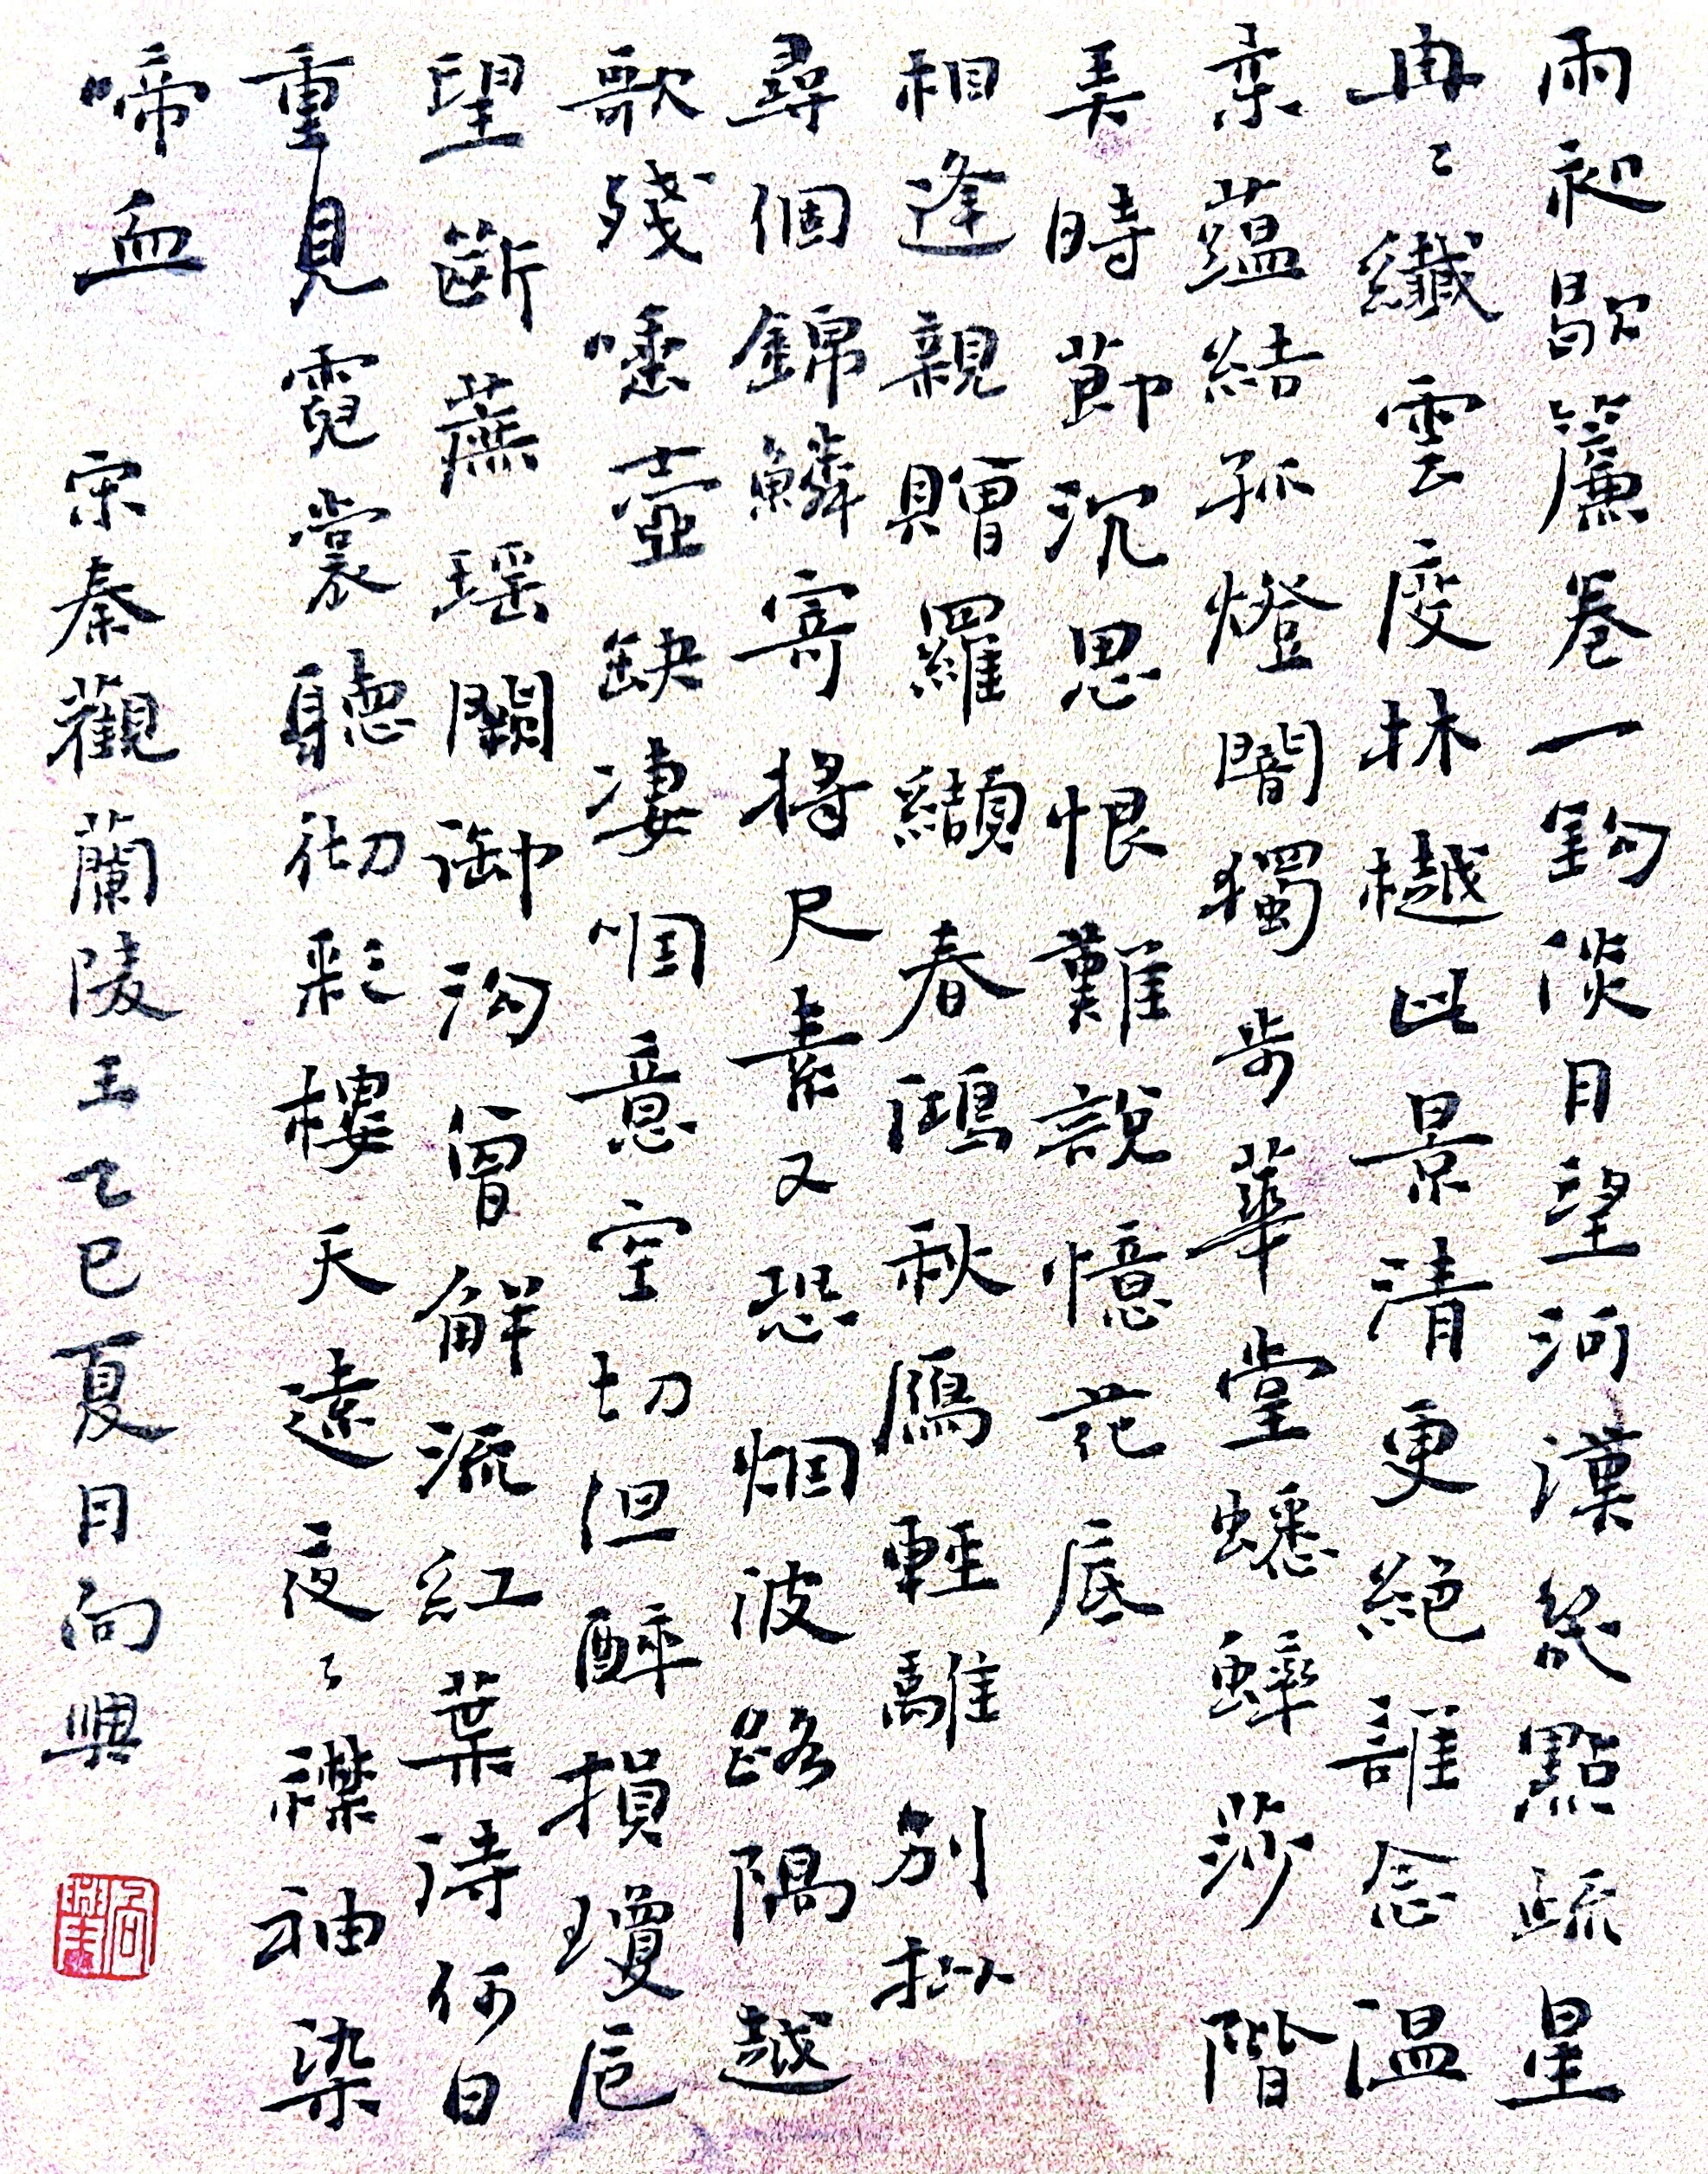 雨初歇簾卷一鈎淡月望河漢幾點疏星
冉々纖雲度林樾此景清更絕誰念溫
柔蘊結孤燈闇獨步華堂蟋蟀莎階
弄時節沉思恨難說憶花底
相逢親贈羅纈春鴻秋鴈輕離別擬
尋個錦鱗寄將尺素又恐烟波路隔越
歌殘唾壺缺凄咽意空切但醉損瓊卮
望斷蕪瑶闕御溝曾解流紅葉詩何日
重見霓裳聽徹彩樓天遠夜々襟袖染
啼血 宋秦觀蘭陵王乙巳夏月向興